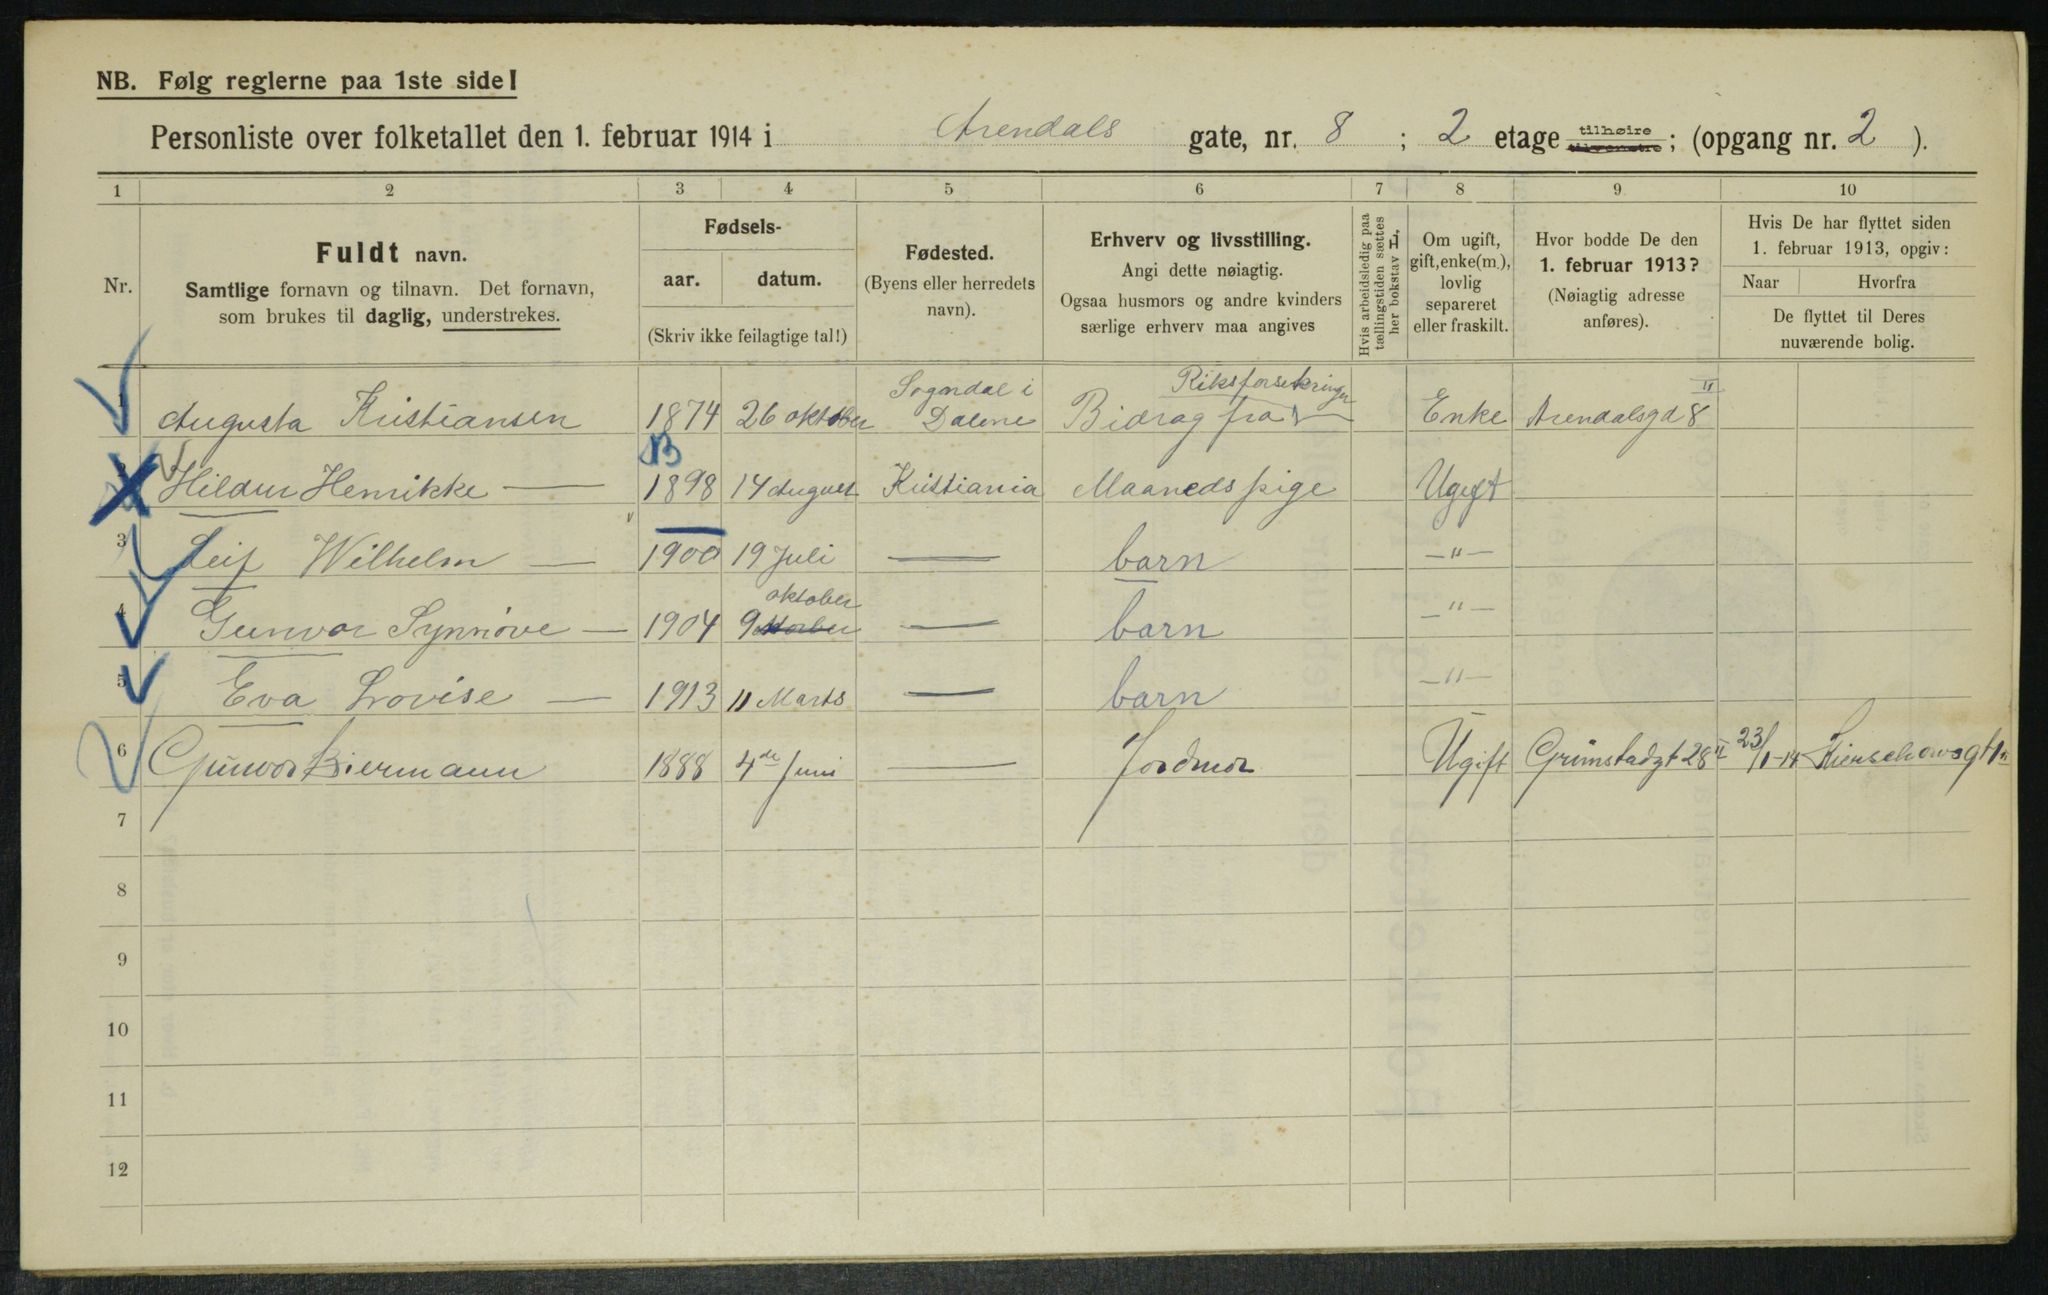 NB. Følg reglerne paa 1ste side!
Personliste over folketallet den 1. februar 1914 i Arendals gate, nr. 8 ; 2 etage tilhøire tilvenstre ; (opgang nr. 2 ).
1 2 3 4 5 6 7 8 9 10
Nr.
Fuldt navn.
Samtlige fornavn og tilnavn. Det fornavn,
som brukes til daglig, understrekes.
Fødsels-
aar. datum.
(Skriv ikke feilagtige tal!)
Fødested.
(Byens eller herredets
navn).
Erhverv og livsstilling.
Angi dette nøiagtig.
Ogsaa husmors og andre kvinders
særlige erhverv maa angives
Hvis arbeidsledig paa
tællingstiden sættes
her bokstav L.
Om ugift,
gift, enke(m.),
lovlig
separeret
eller fraskilt.
Hvor bodde De den
1. februar 1913?
(Nøiagtig adresse
anføres).
Hvis De har flyttet siden
1. februar 1913, opgiv:
Naar Hvorfra
De flyttet til Deres
nuværende bolig.
1 Augusta Kristiansen 1874 26 oktober Sogndal i Dalene Bidrag fra Riksforsikringen Enke Arendalsgd 8 II
2 Hildur Henrikke — 1898 14 August Kristiania Maanedspige Ugift
3 Leif Wilhelm — 1900 19 Juli — barn —"—
4 Gunvor Synnöve — 1904 9 oktober — barn —"—
5 Eva Lovise — 1913 11 Marts — barn —"—
6 Gunvor Biermann 1888 4de Juni — Jordmor Ugift Grimstadgt 28 II 23/1-14 Kierschowsgt 1
7
8
9
10
11
12